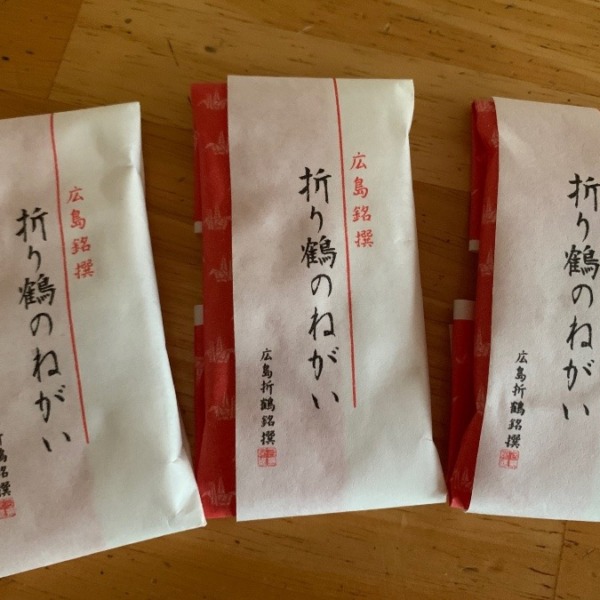 広島銘撰
折り鶴のねがい
折鶴銘撰
広島銘撰
折り鶴のねがい
広島折鶴銘撰
折り鶴のねがい
広島折鶴銘撰